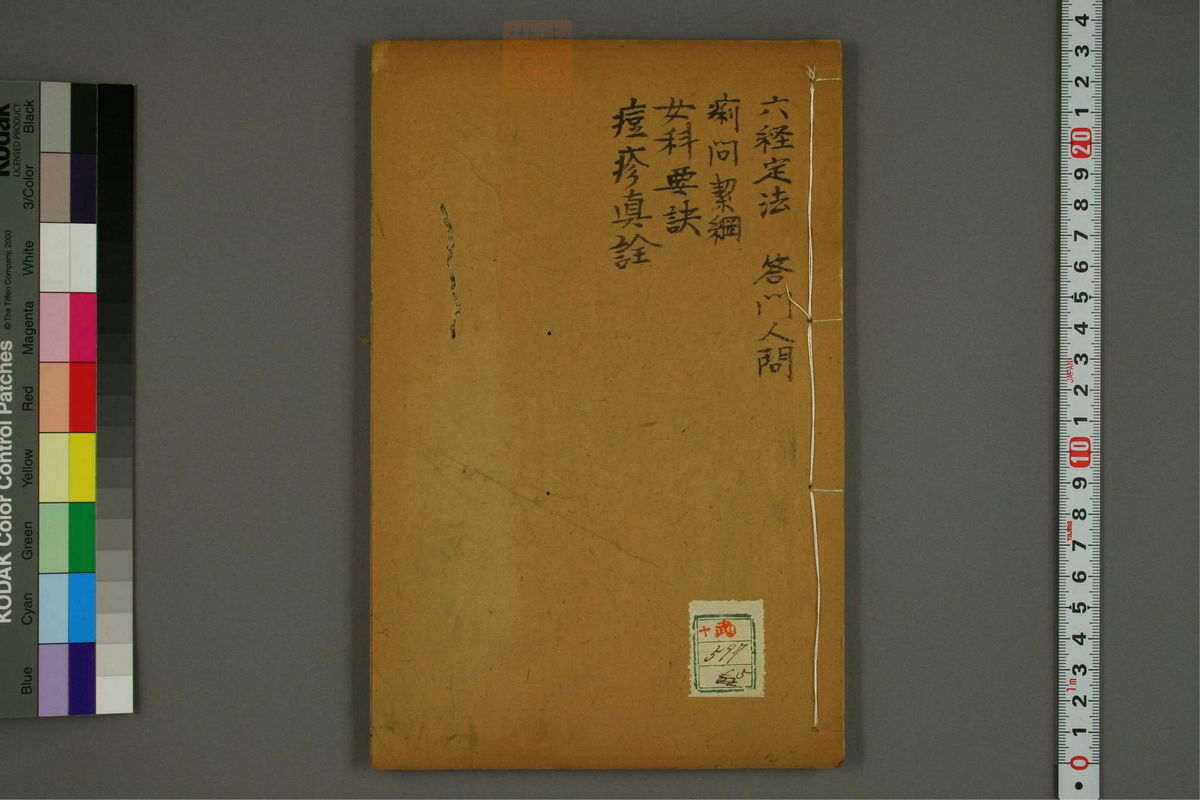 六経定法 答門人問
痢問絜綱
女科要訣
痘疹真詮
十 武
597
5
KODAK Color Control Patches
© The Tiffen Company, 2000
Kodak
LICENSED PRODUCT
Blue Cyan Green Yellow Red Magenta White 3/Color Black
0 1 2 3 4 5 6 7 8 9 10 1 2 3 4 5 6 7 8 9 20 1 2 3 4
1m
JAPAN